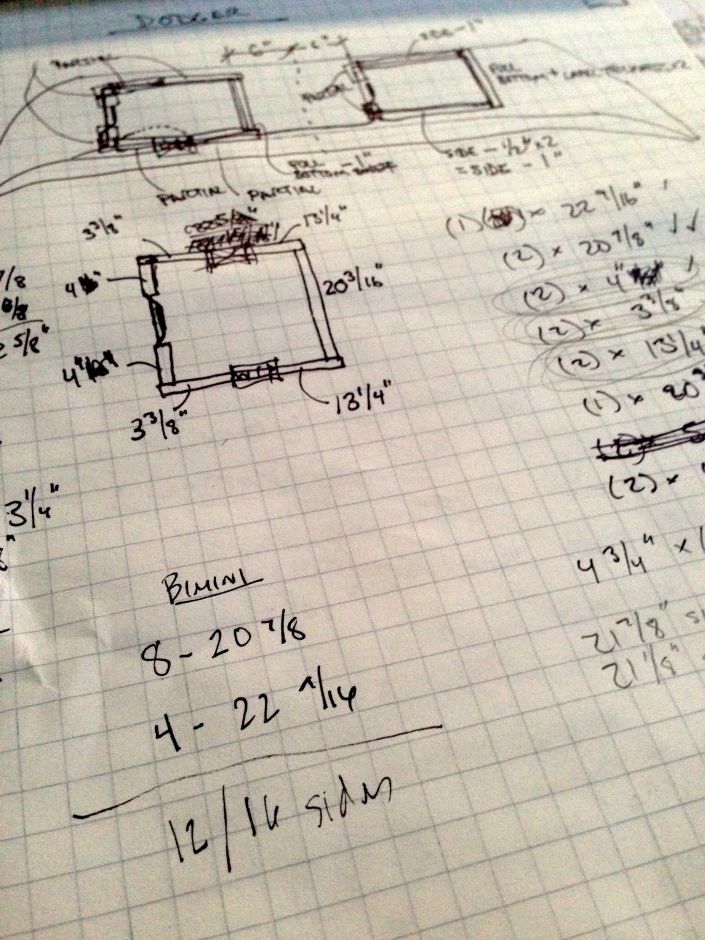 DODGER
PARTIAL
6" 6"
SIDE - 1"
FULL
BOTTOM +
PARTIAL
FULL
BOTTOM - 1"
SIDE - 1/2" x 2
= SIDE - 1"
PARTIAL PARTIAL
3 3/8"
13 1/4"
4
20 3/16"
4"
3 3/8"
13 1/4"
(1) x 22 9/16"
(2) x 20 7/8" ✓✓
(2) x 4" ✓
(2) x 3 3/8"
(2) x 13 1/4"
(1) x 20
(2) x
7/8
5/8"
3 1/4"
4 3/4" x
21 7/8"
21 1/8"
BIMINI
8 - 20 7/8
4 - 22 9/16
12/16 sides